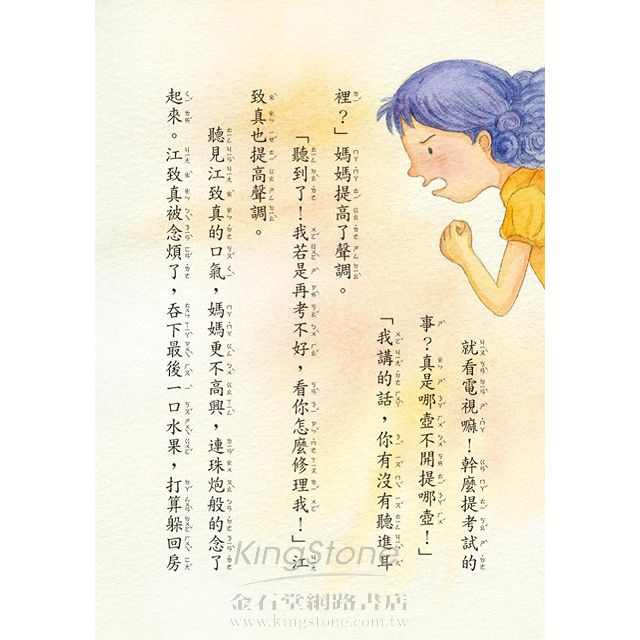 就看電視嘛!幹麼提考試的
事?真是哪壺不開提哪壺!」
「我講的話,你有沒有聽進耳
裡?」媽媽提高了聲調。
「聽到了!我若是再考不好,看你怎麼修理我!」江
致真也提高聲調。
聽見江致真的口氣,媽媽更不高興,連珠炮般的念了
起來。江致真被念煩了,吞下最後一口水果,打算躲回房
KingStone
金石堂網路書店
www.kingstone.com.tw